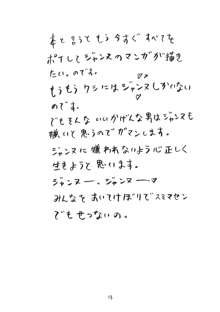 本と言うともう今すぐすべてを
ポイしてジャンヌのマンガが描き
たい。のです。
もうもうワシにはジャンヌしかいない
のです。
でもそんないいかげんな男はジャンヌも
嫌いて思うのでガマンします。
ジャンヌに嫌われないよう心正しく
生きようと思います。
ジャンヌー、ジャンヌー
みんなをおいてけぼりでスミマセン
でもせつないの。